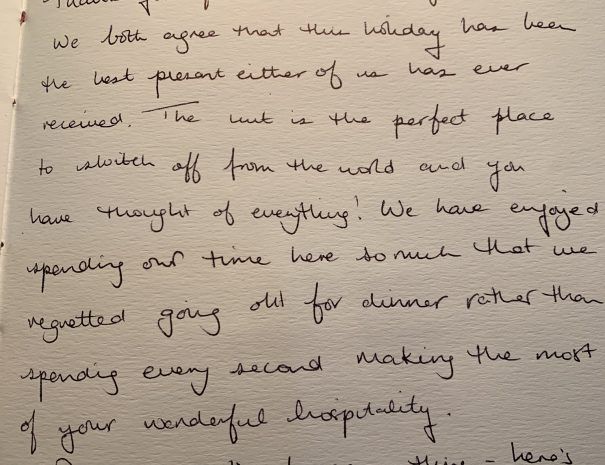 We both agree that this holiday has been
the best present either of us has ever
received. The hut is the perfect place
to switch off from the world and you
have thought of everything! We have enjoyed
spending our time here so much that we
regretted going out for dinner rather than
spending every second making the most
of your wonderful hospitality.
- here's